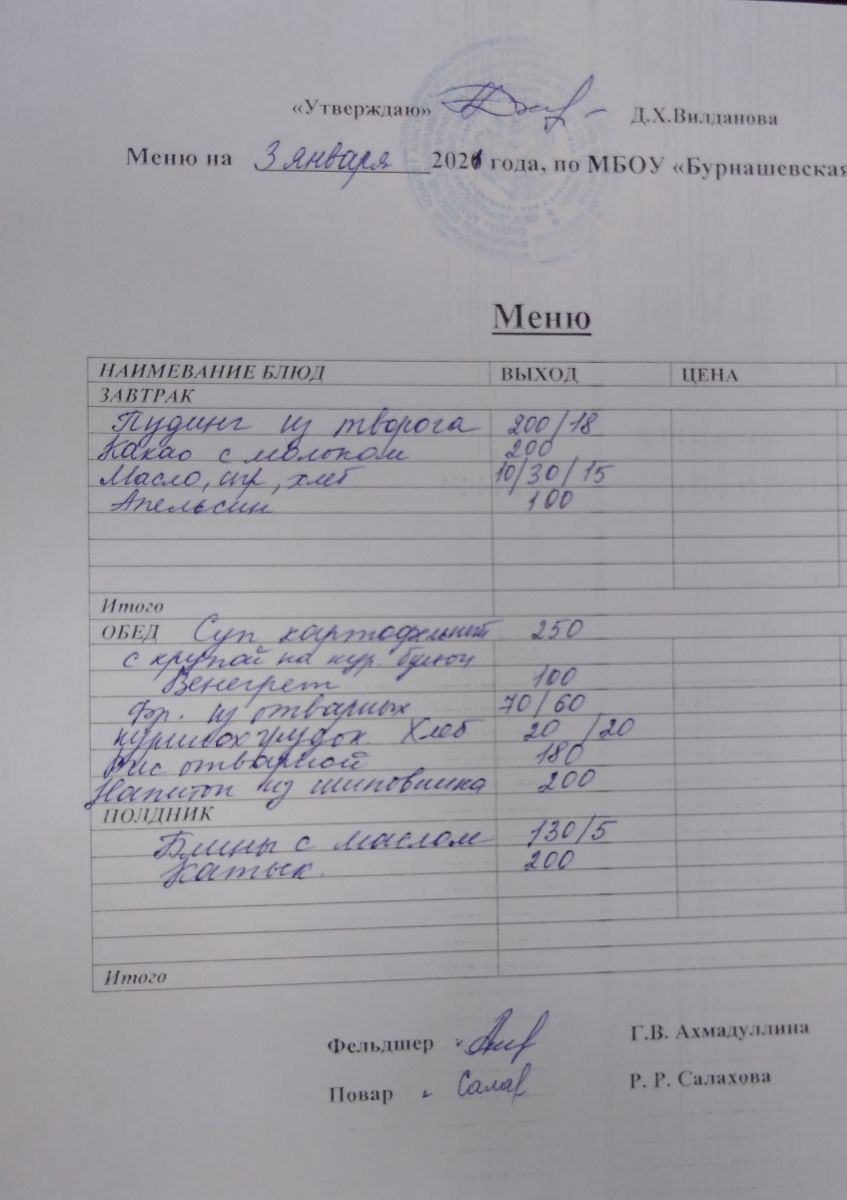 «Утверждаю» Д.Х.Вилданова
Меню на 3 января 2021 года, по МБОУ «Бурнашевская
Меню
НАИМЕВАНИЕ БЛЮД ВЫХОД ЦЕНА
ЗАВТРАК
Пудинг из творога 200/18
Какао с молоком 200
Масло, сыр, хлеб 10/30/15
Апельсин 100
Итого
ОБЕД Суп картофельный 250
с крупой на кур. бульон
Венегрет 100
Фр. из отварных 70/60
куриных грудок. Хлеб 20 /20
Рис отварной 180
Напиток из шиповника 200
ПОЛДНИК
Блины с маслом 130/5
Катык. 200
Итого
Фельдшер Г.В. Ахмадуллина
Повар Салах Р. Р. Салахова